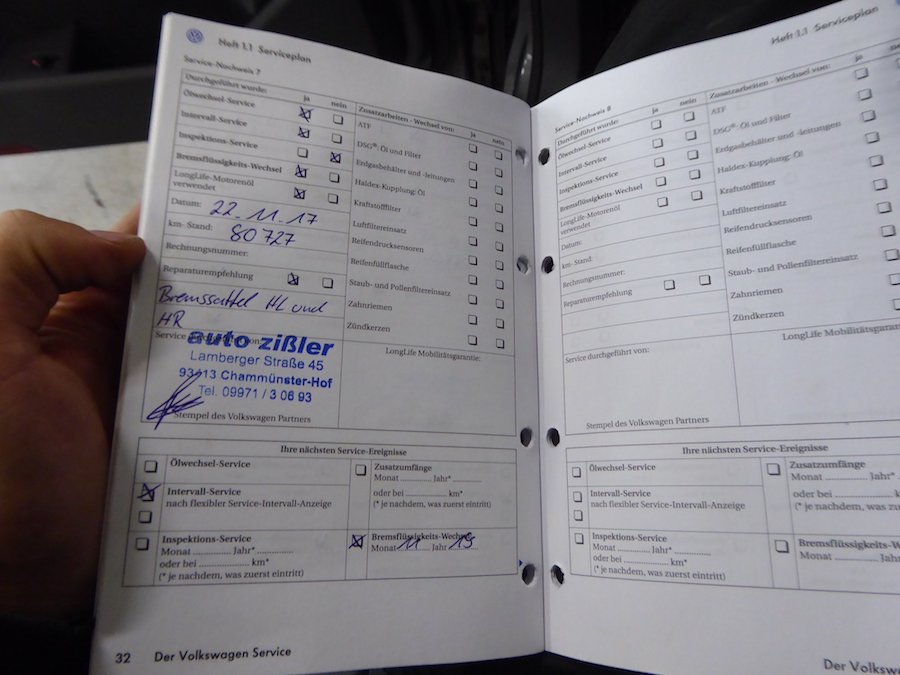 Heft 1.1 Serviceplan
Service-Nachweis 7
Durchgeführt wurde: ja nein
Ölwechsel-Service
Intervall-Service
Inspektions-Service
Bremsflüssigkeits-Wechsel
LongLife-Motorenöl
verwendet
Datum: 22.11.17
km-Stand: 80727
Rechnungsnummer:
Reparaturempfehlung
Bremssattel HL und
HR
auto zißler
Lamberger Straße 45
93413 Chammünster-Hof
Tel. 09971 / 3 06 93
Stempel des Volkswagen Partners
Zusatzarbeiten - Wechsel von: ja nein
ATF
DSG®: Öl und Filter
Erdgasbehälter und -leitungen
Haldex-Kupplung: Öl
Kraftstofffilter
Luftfiltereinsatz
Reifendrucksensoren
Reifenfüllflasche
Staub- und Pollenfiltereinsatz
Zahnriemen
Zündkerzen
LongLife Mobilitätsgarantie:
Ihre nächsten Service-Ereignisse
Ölwechsel-Service
Intervall-Service
nach flexibler Service-Intervall-Anzeige
Inspektions-Service
Monat ............. Jahr* .............
oder bei ............. km*
(* je nachdem, was zuerst eintritt)
Zusatzumfänge
Monat ............. Jahr* .............
oder bei ............. km*
(* je nachdem, was zuerst eintritt)
Bremsflüssigkeits-Wechsel
Monat 11 Jahr 19
32 Der Volkswagen Service
Heft 1.1 Serviceplan
Service-Nachweis 8
Durchgeführt wurde: ja nein
Ölwechsel-Service
Intervall-Service
Inspektions-Service
Bremsflüssigkeits-Wechsel
LongLife-Motorenöl
verwendet
Datum:
km-Stand:
Rechnungsnummer:
Reparaturempfehlung
Service durchgeführt von:
Stempel des Volkswagen Partners
Zusatzarbeiten - Wechsel von: ja
ATF
DSG®: Öl und Filter
Erdgasbehälter und -leitungen
Haldex-Kupplung: Öl
Kraftstofffilter
Luftfiltereinsatz
Reifendrucksensoren
Reifenfüllflasche
Staub- und Pollenfiltereinsatz
Zahnriemen
Zündkerzen
LongLife Mobilitätsgarantie
Ihre nächsten Service-Ereignisse
Ölwechsel-Service
Intervall-Service
nach flexibler Service-Intervall-Anzeige
Inspektions-Service
Monat ............. Jahr* .............
oder bei ............. km*
(* je nachdem, was zuerst eintritt)
Zusatzumfänge
Monat ............. Jahr*
oder bei ............. km*
(* je nachdem, was zuerst
Bremsflüssigkeits-W
Monat ............. Jahr
Der Volksw